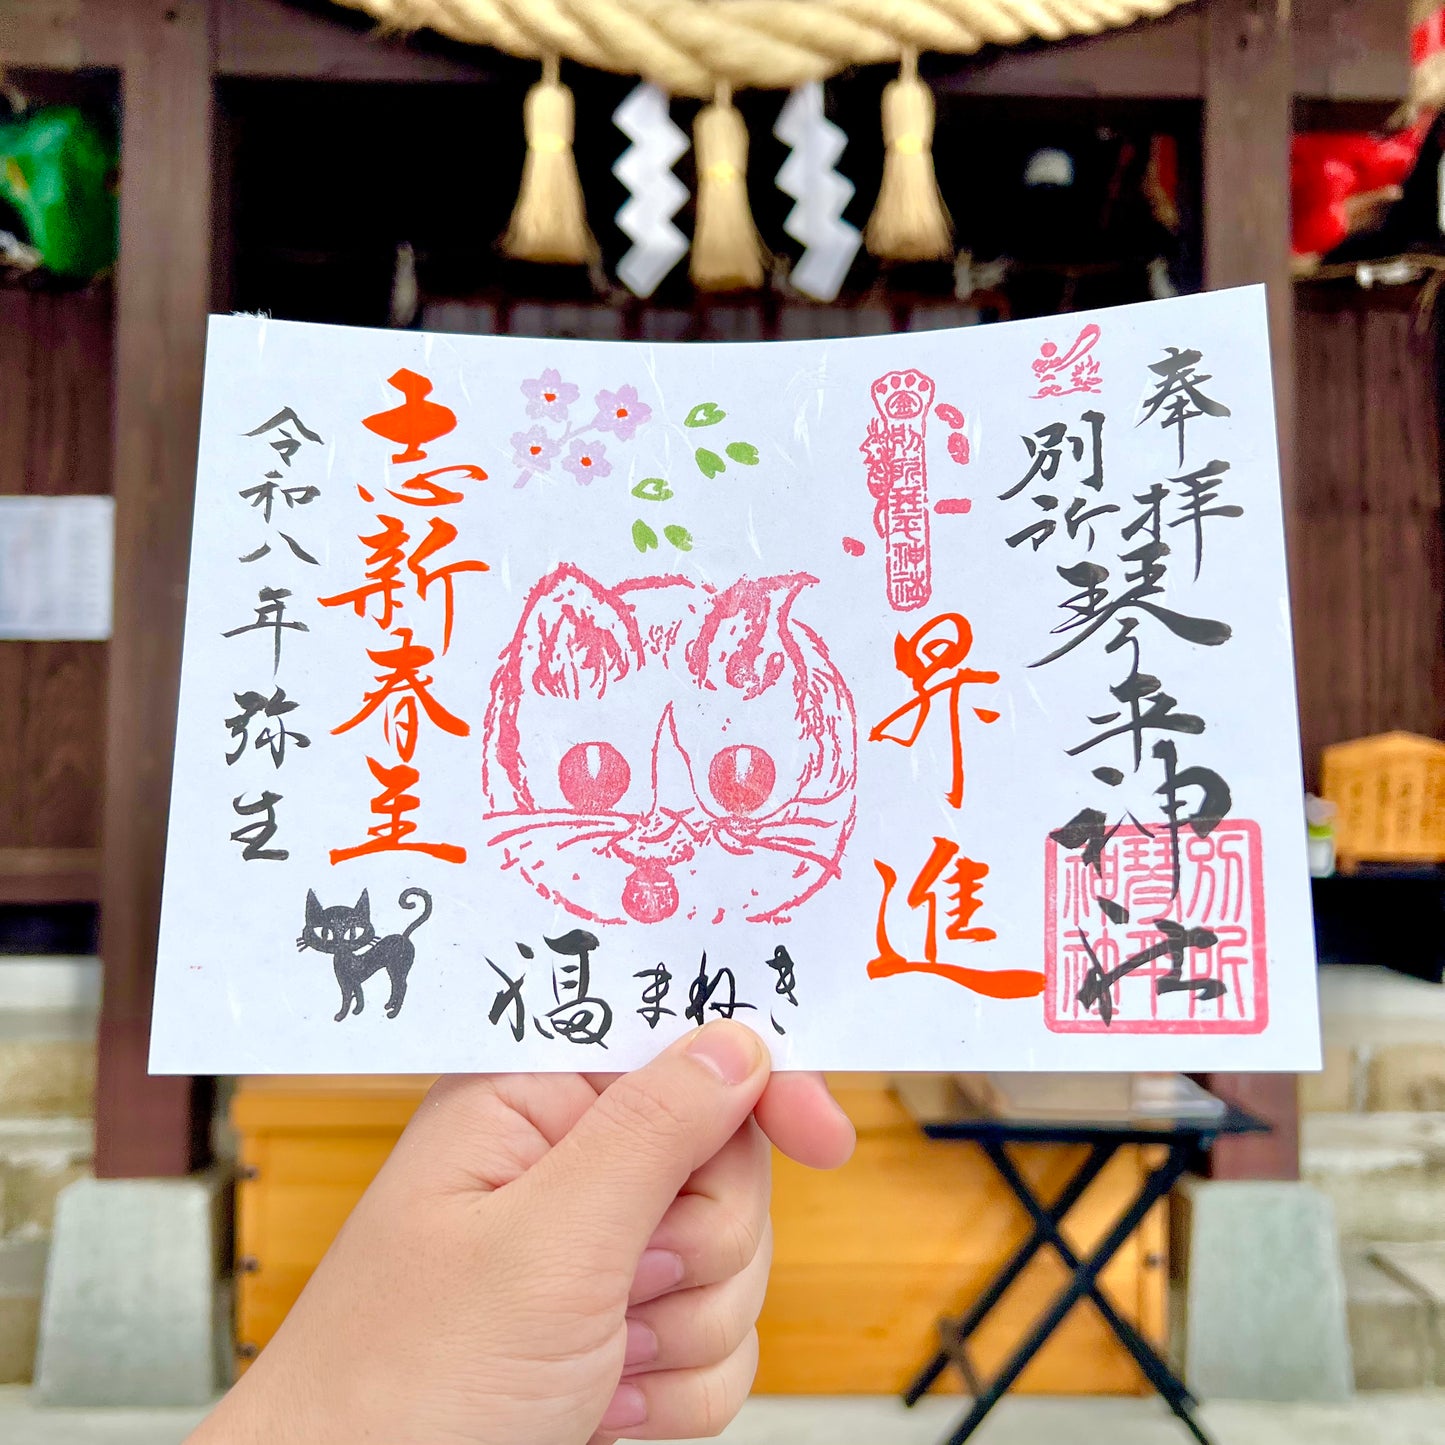 奉拝
別所琴平神社
別所
琴平
神社
金
別所琴平神社
昇進
福まねき
志新春至
令和八年弥生